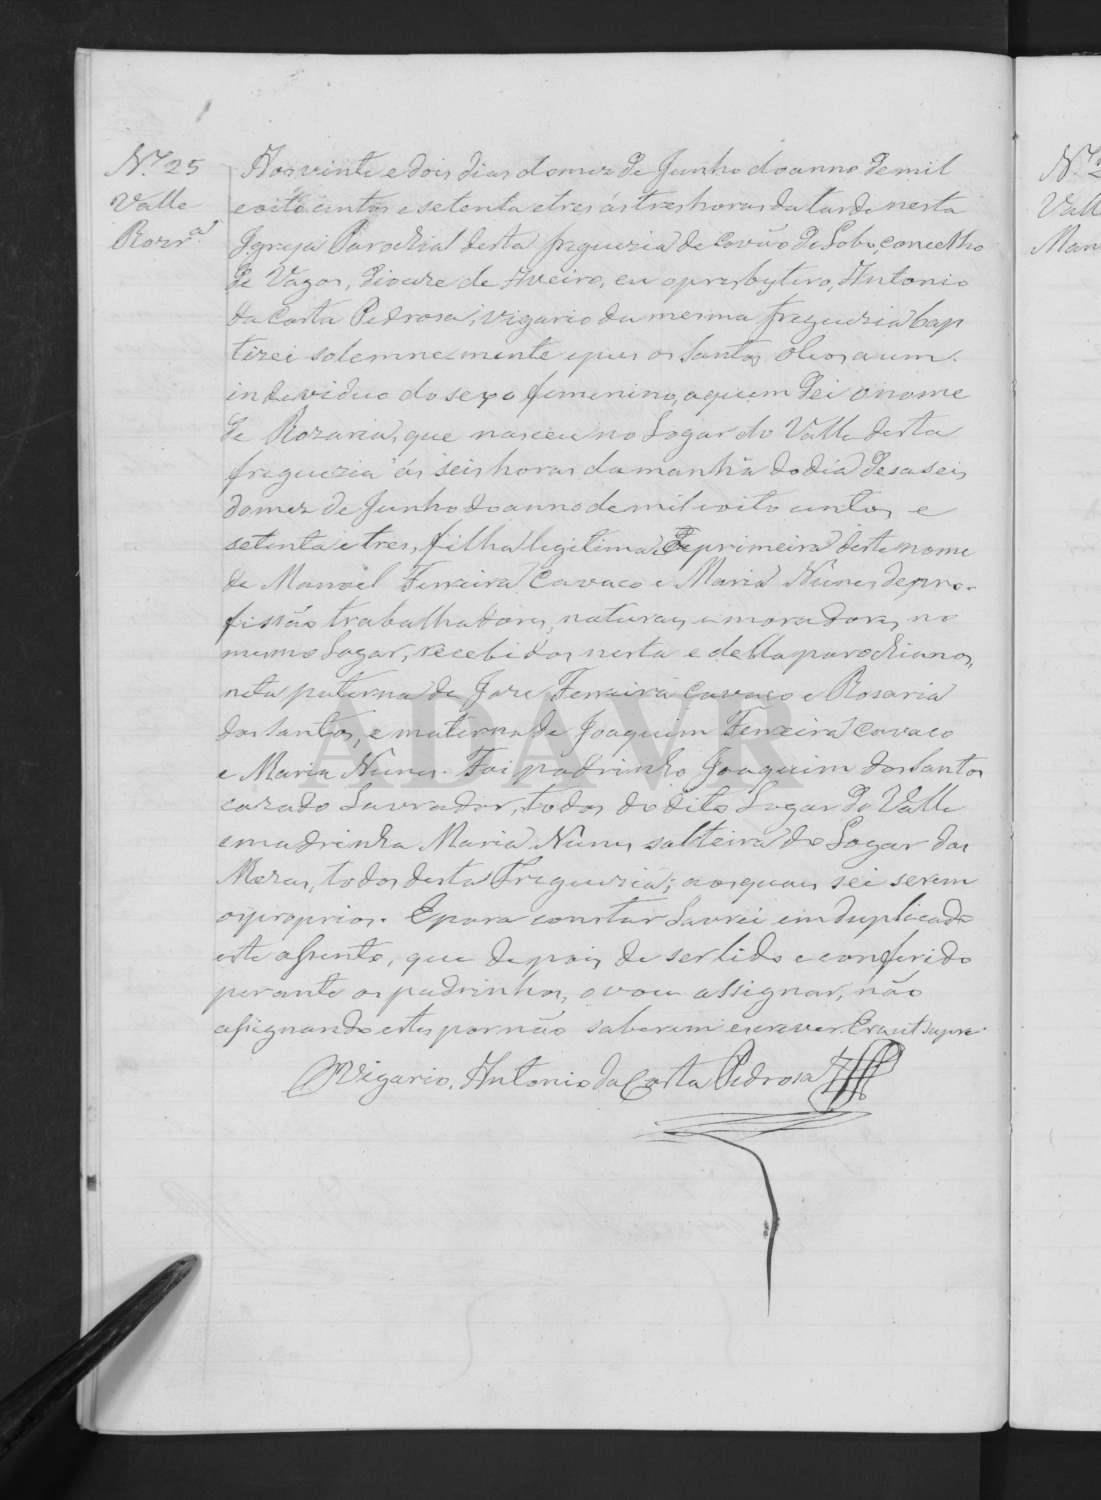 N.º 25
Valle
Rozr.ª
Aos vinte e dois dias do mez de Junho do anno de mil
e oito centos e setenta e tres ás tres horas da tarde nesta
Igreja Parochial desta freguezia de Covão do Lobo, concelho
de Vagos, Diocese de Aveiro, eu o presbytero, Antonio
da Costa Pedrosa, vigario da mesma freguezia bap
tizei solemnemente e pus os Santos Oleos a um
individuo do sexo femenino, a quem dei o nome
de Rozaria, que nasceu no Logar do Valle desta
freguezia ás seis horas da manhã do dia desaseis
do mez de Junho do anno de mil e oito centos e
setenta e tres, filha legitima e primeira deste nome
de Manoel Ferreira Cavaco e Maria Nunes de pro-
fissão trabalhadores, naturaes e moradores no
mesmo Logar, recebidos nesta e della parochianos,
neta paterna de Joze Ferreira Cavaco e Rosaria
dos Santos, e materna de Joaquim Ferreira Cavaco
e Maria Nunes. Foi padrinho Joaquim dos Santos
cazado Lavrador, todos do dito Lugar do Valle
e madrinha Maria Nunes solteira do Logar das
Mezas, todos desta Freguezia; aos quaes sei serem
os proprios. E para constar Lavrei em duplicado
este assento, que depois de ser lido e conferido
perante os padrinhos, o vou assignar, não
assignando estes por não saberem escrever. Era ut supra
O Vigario, Antonio da Costa Pedrosa
N.º 2
Vall
Man
ADAVR